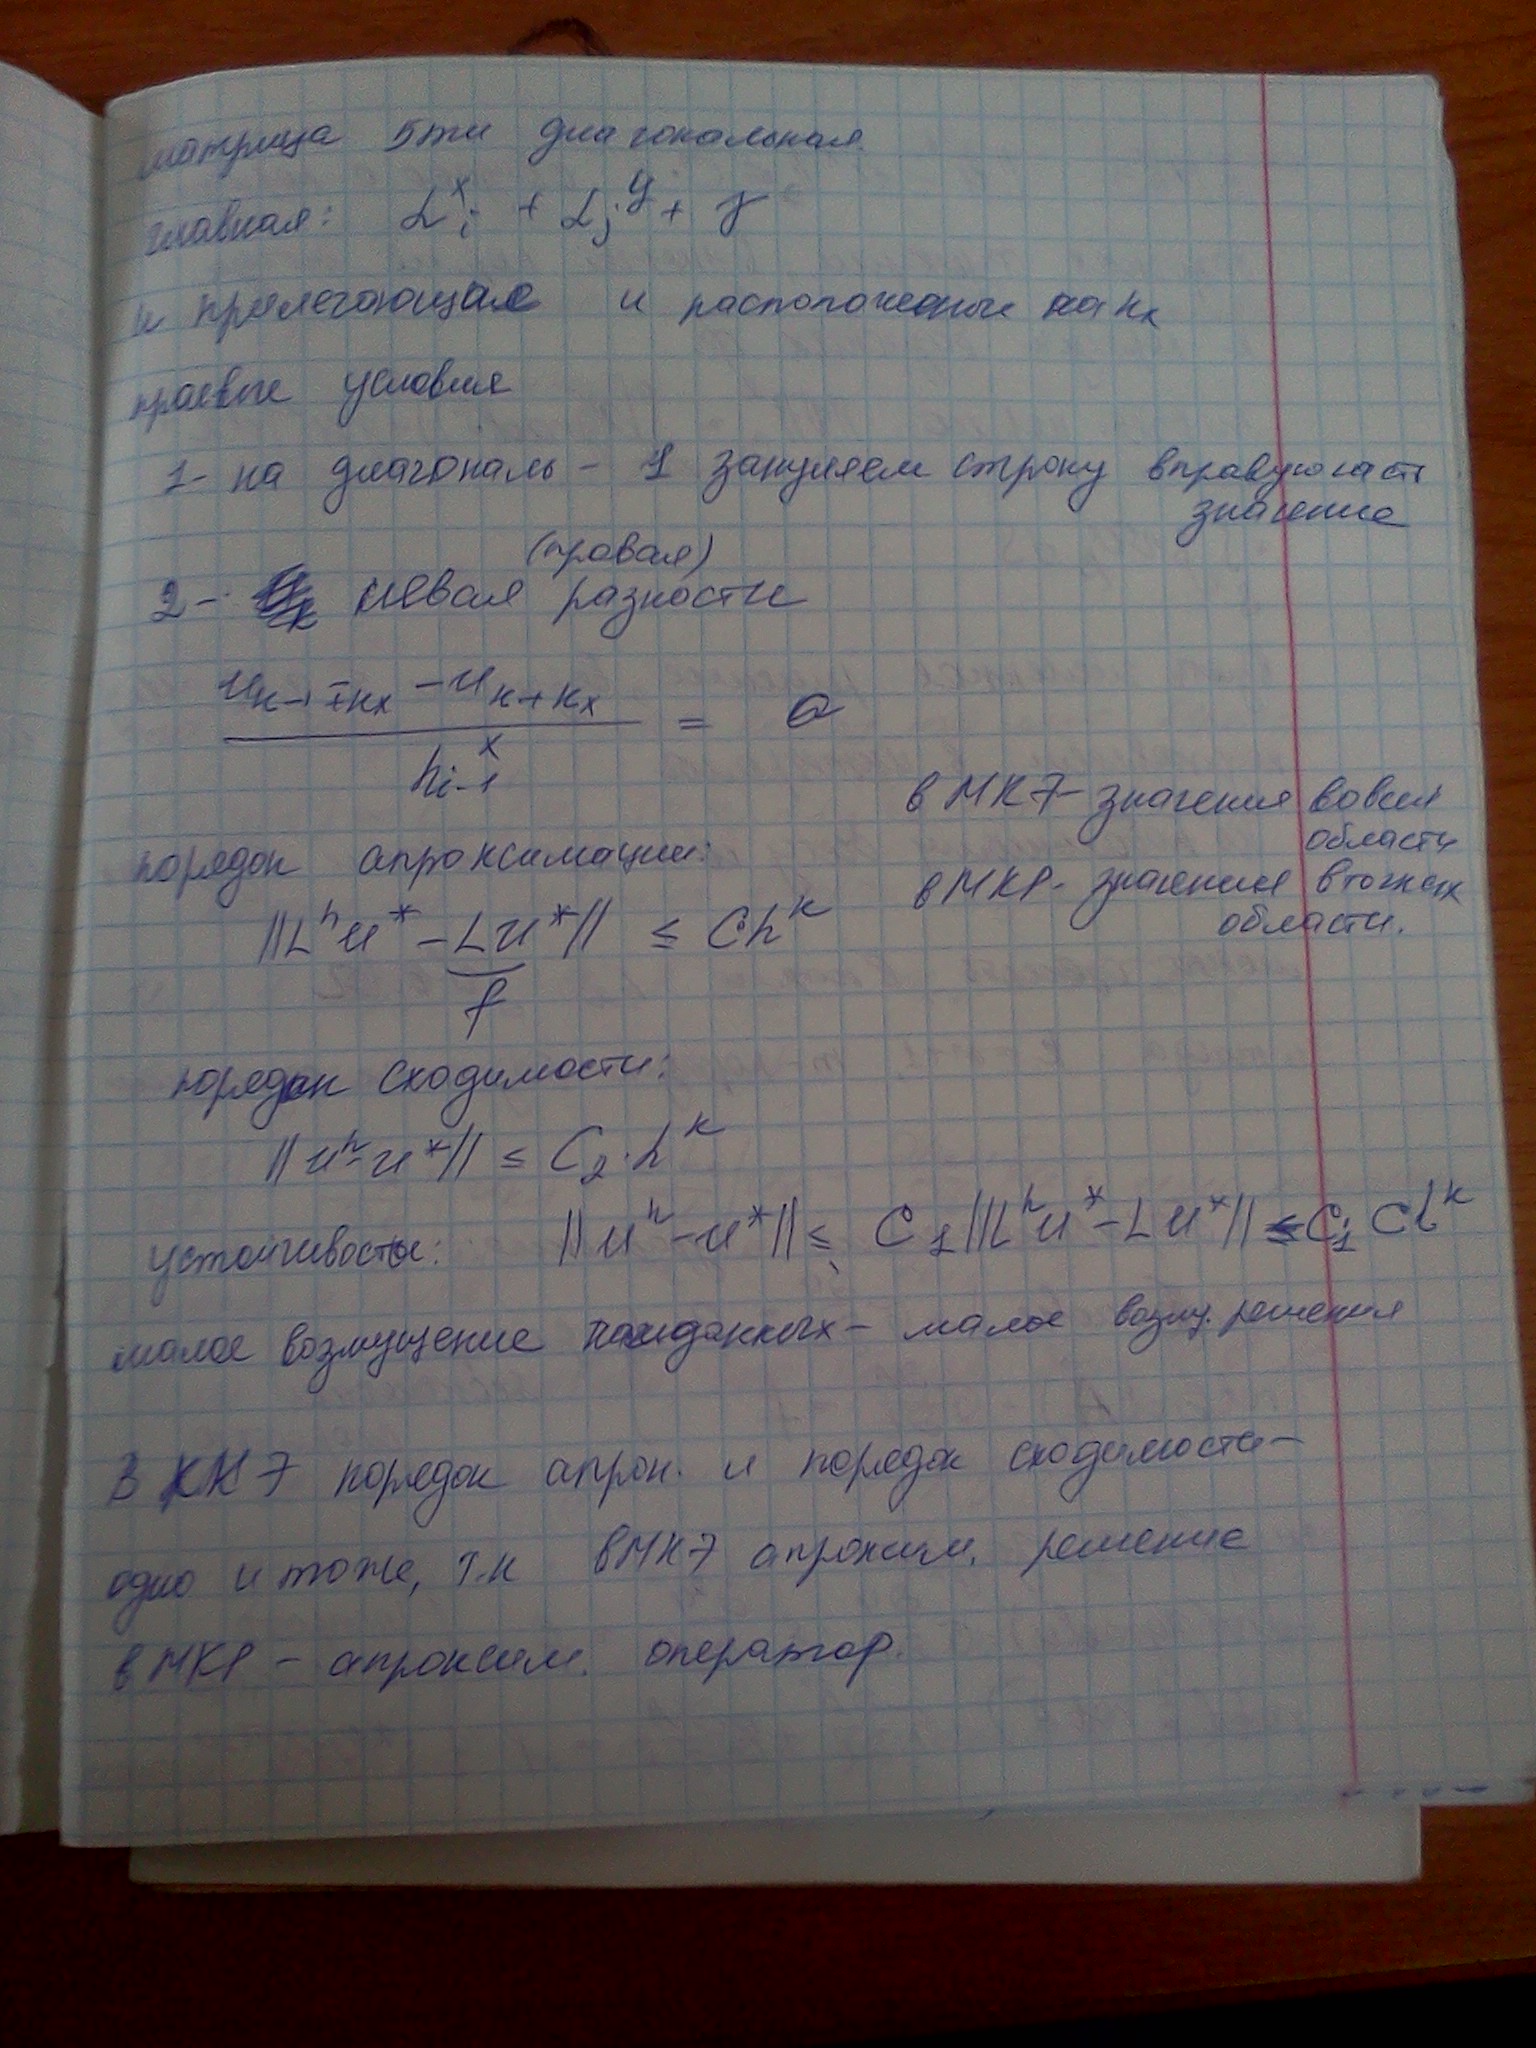 матрица 5ти диагональная.
главная: L^x_i + L_j^y + γ
и прилегающие и расположенные на k_x
краевые условия
1- на диагональ - 1 зануляем строку в правую часть
значение
(правая)
2- левая разности
(u_{k-1+k_x} - u_{k+k_x}) / h^x_{i-1} = θ
в МКЭ- значения во всей
области
порядок апроксимации:
в МКР- значение в точках
области.
||L^h u* - Lu*|| ≤ Ch^k
f
порядок сходимости:
||u^h - u*|| ≤ C_2 · h^k
устойчивость: ||u^h - u*|| ≤ C_1 ||L^h u* - Lu*|| ≤ C_1 Ch^k
малое возмущение данных - малое возму. решения
В МКЭ порядок апрок. и порядок сходимости -
одно и тоже, т.к в МКЭ апроксим. решение
в МКР - апроксим. оператор.